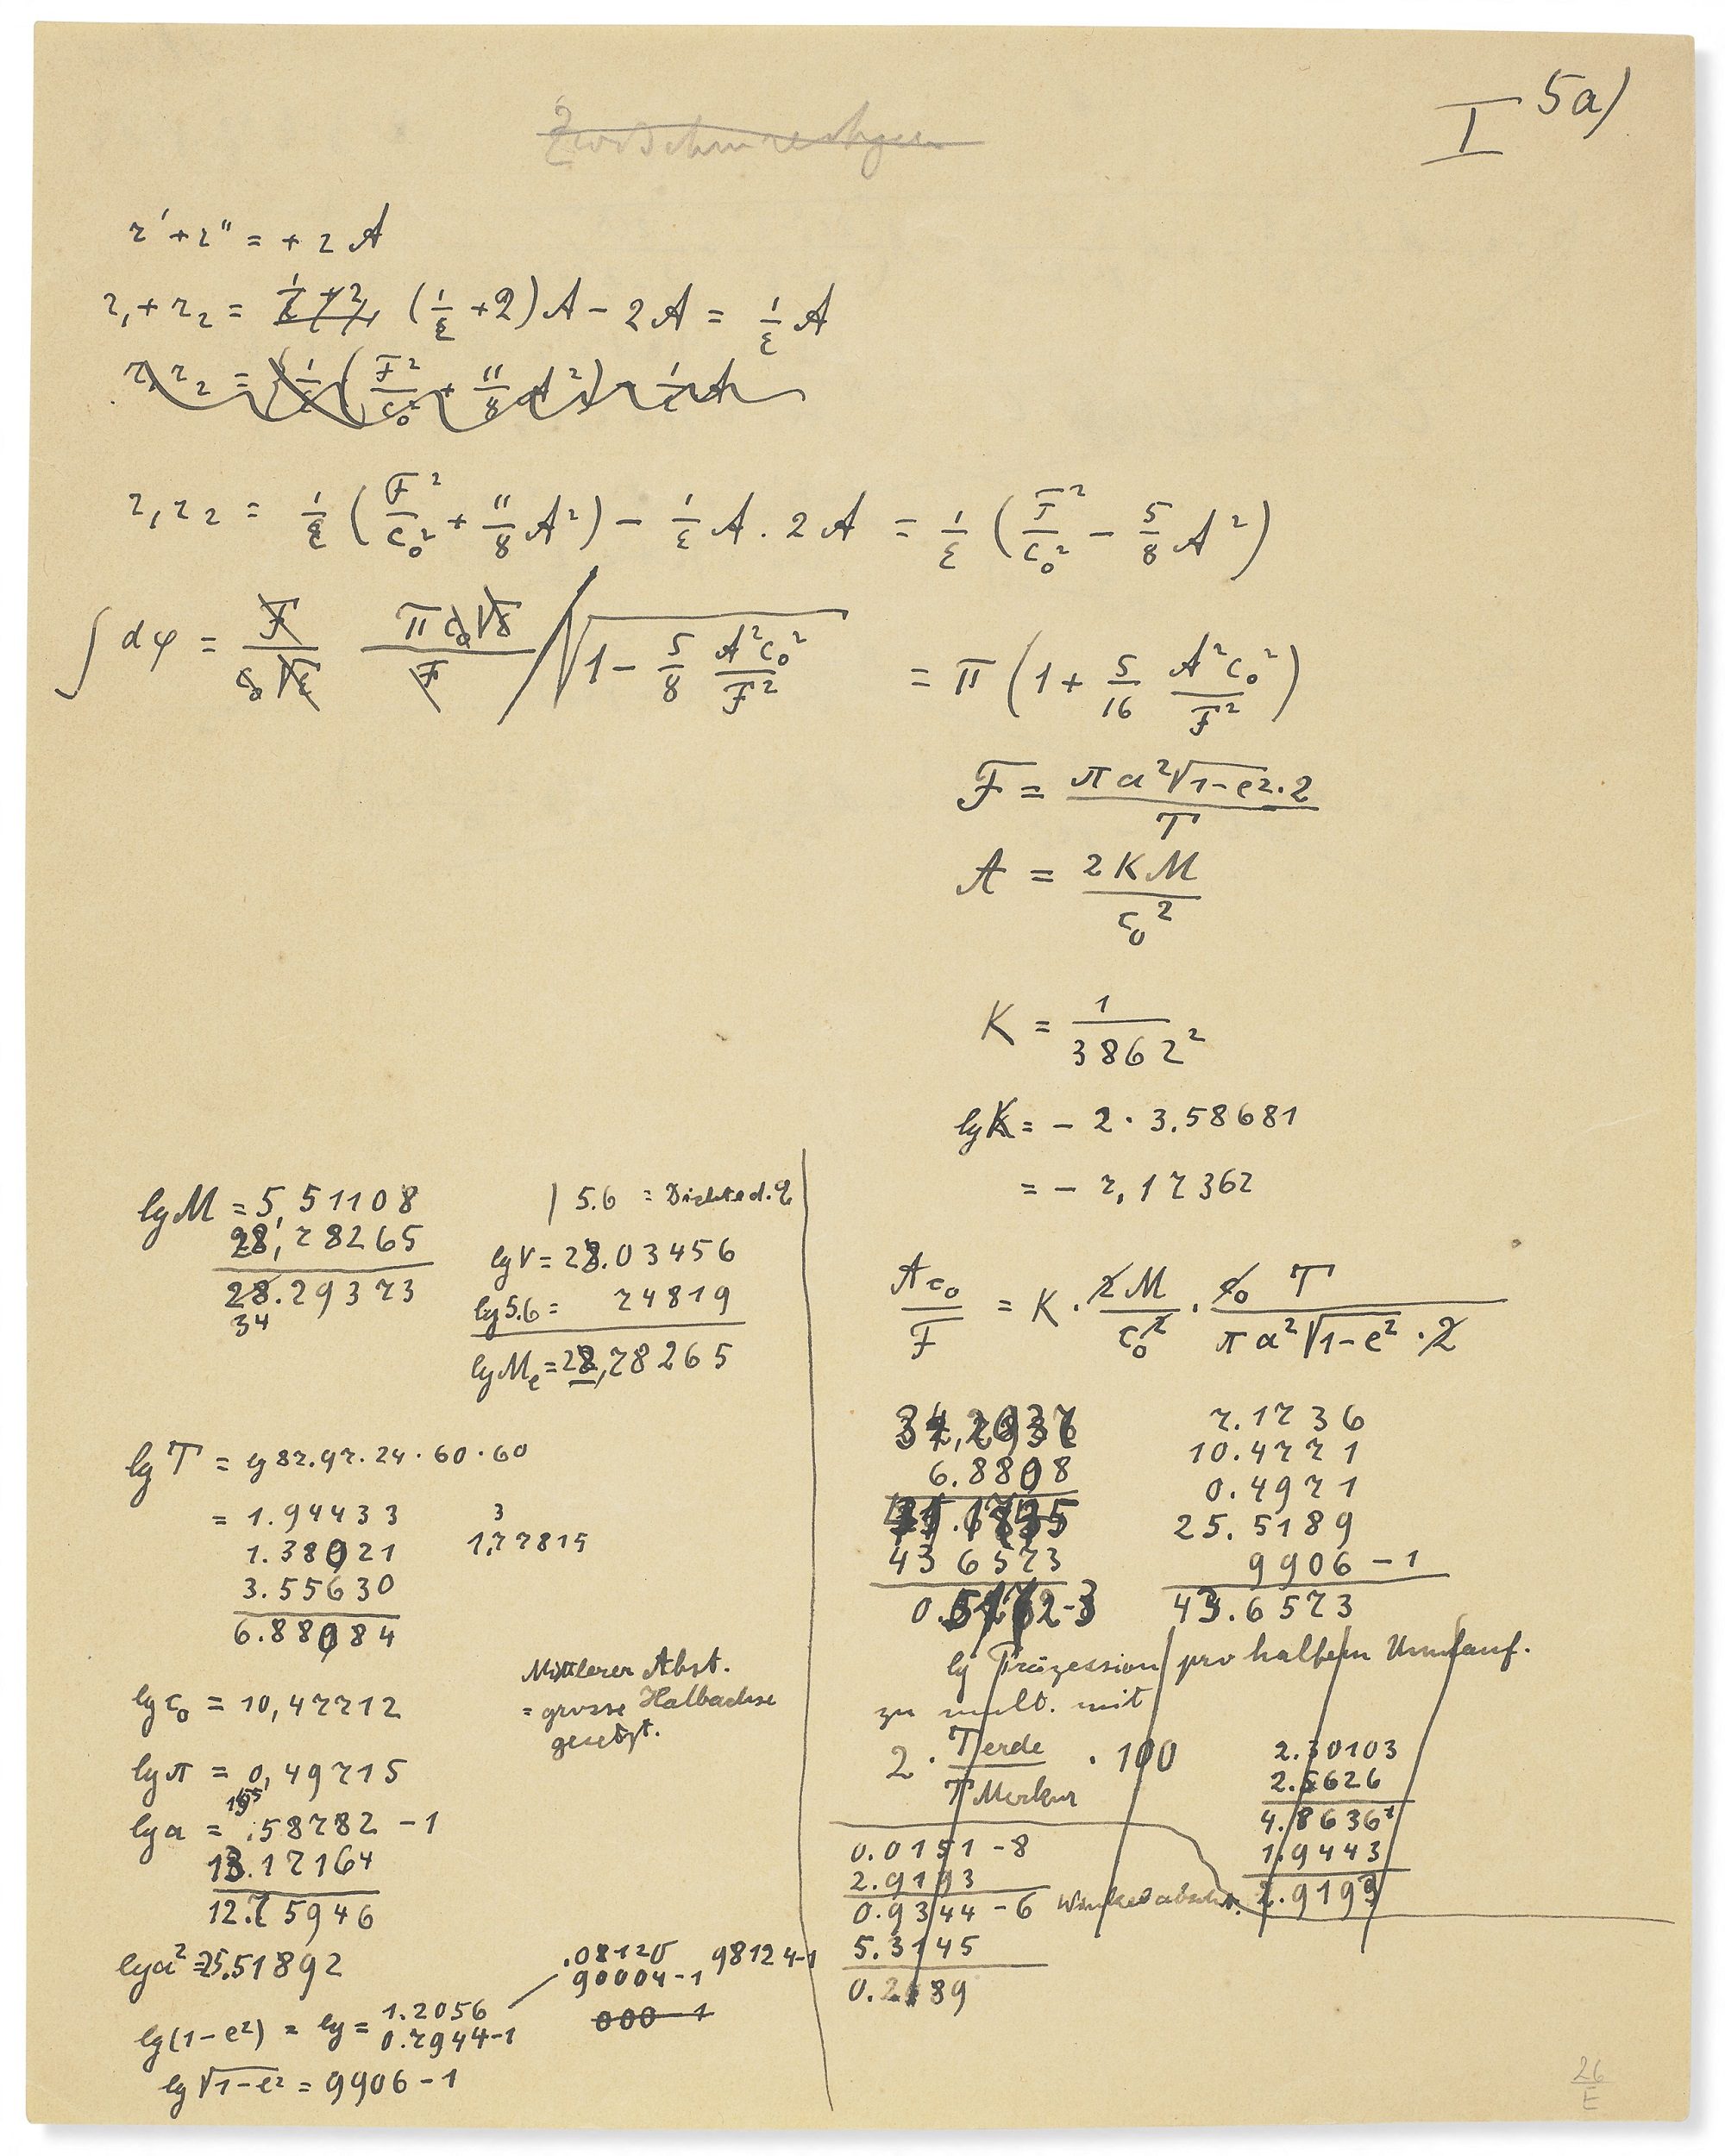 I 5a)
r' + r'' = + 2 A
r₁ + r₂ = (1/ε + 2) A − 2 A = 1/ε A
r₁ r₂ = 1/ε (F²/c₀² + 11/8 A²) − 1/ε A
r₁ r₂ = 1/ε (F²/c₀² + 11/8 A²) − 1/ε A . 2 A = 1/ε (F²/c₀² − 5/8 A²)
∫ dφ = π / √(1 − 5/8 A²c₀²/F²) = π (1 + 5/16 A²c₀²/F²)
F = πa²√(1−e²)·2 / T
A = 2 K M / c₀²
K = 1 / 3862²
lg K = − 2 · 3.58681
= − 7,17362
lg M = 5,51108
28,78265
28.29373
34
| 5.6 = Dichte d.
lg V = 28.03456
lg 5.6 = 74819
lg Mₑ = 28,78265
A c₀ / F = K · 2M / c₀² · c₀ T / πa²√(1−e²) · 2
lg T = lg 87.97.24·60·60
= 1.94433
1.38021
3.55630
6.88084
3
1,77815
Mittlerer Abst.
= grosse Halbachse
gesetzt.
lg c₀ = 10,47712
lg π = 0,49715
lg a = ,58782 − 1
13.17164
12.75946
lg a² = 25.51892
lg(1−e²) = lg = 1.2056
0.7944-1
.08120
90004-1
98124-1
000 1
lg √(1−e²) = 9906 − 1
6.8808
43 6573
7.1736
10.4771
0.4971
25.5189
9906 − 1
43.6573
lg Präzession pro halben Umlauf.
zu mult. mit
2 · T Erde / T Merkur · 100
2.30103
2.5626
4.8636
1.9443
2.9193
0.0151 -8
2.9193
0.9344 -6
5.3145
0.2489
26
E